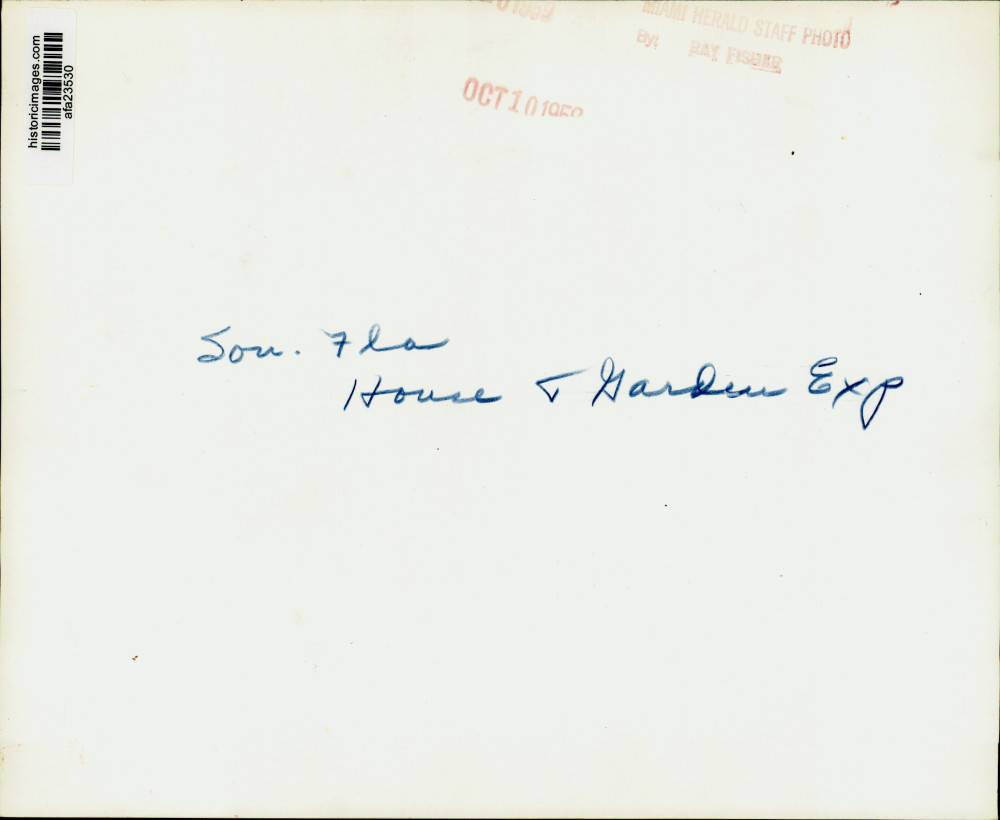 historicimages.com
afa23530
MIAMI HERALD STAFF PHOTO
By: RAY FISHER
OCT 10
Sou. Fla
House & Garden Exp